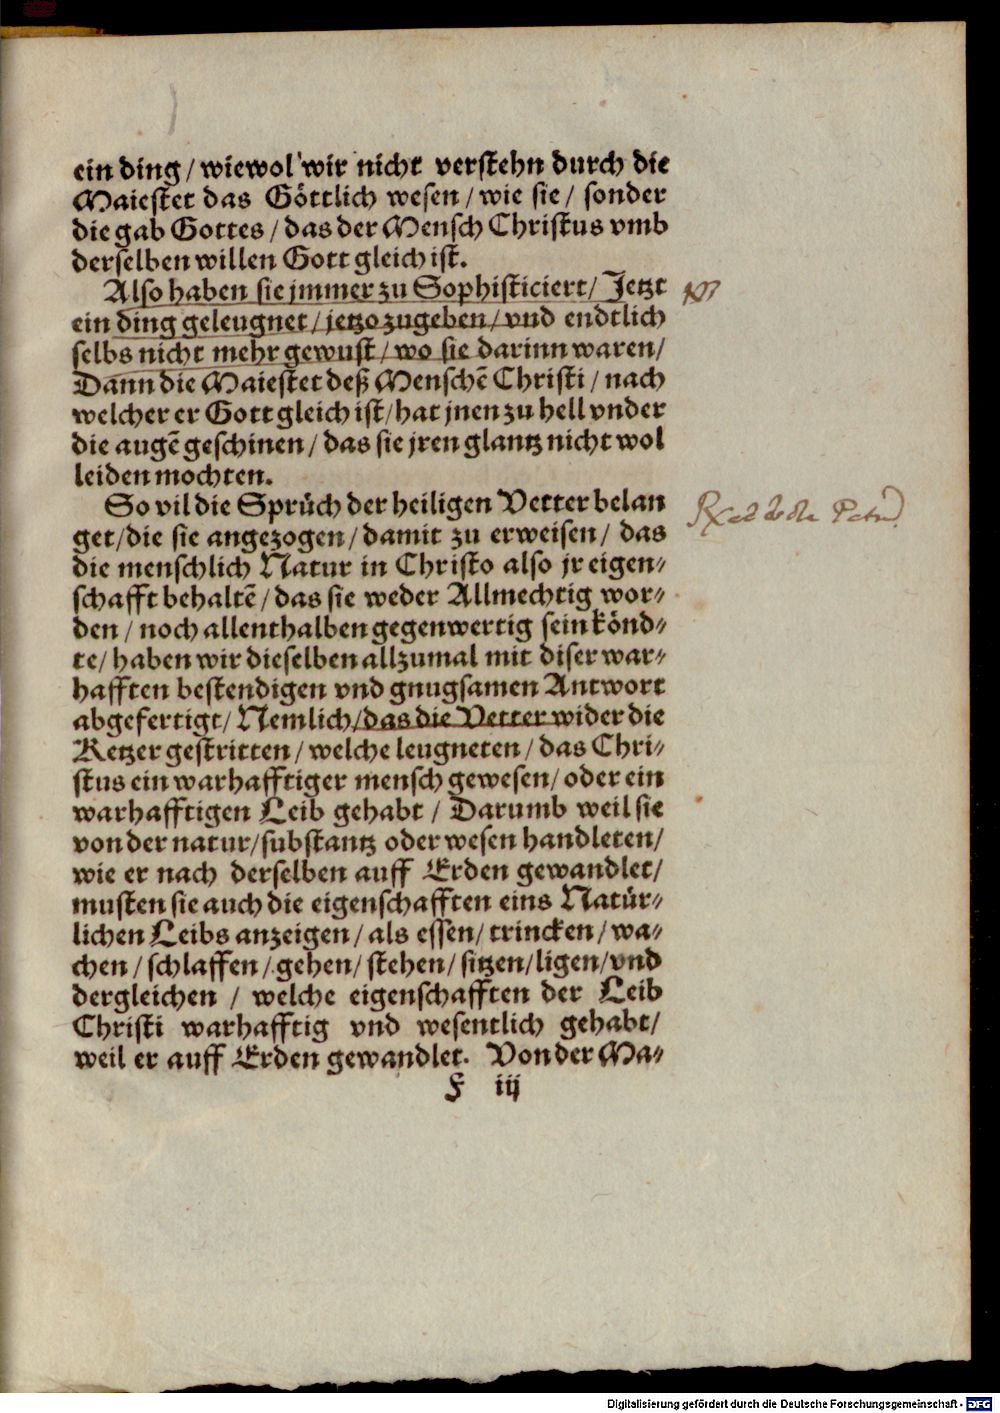 ein ding / wiewol wir nicht verstehn durch die
Maiestet das Göttlich wesen / wie sie / sonder
die gab Gottes / das der Mensch Christus vmb
derselben willen Gott gleich ist.
Also haben sie jmmer zu Sophisticiert / Jetzt
ein ding geleugnet / jetzo zugeben / vnd endtlich
selbs nicht mehr gewust / wo sie darinn waren /
Dann die Maiestet deß Menschē Christi / nach
welcher er Gott gleich ist / hat jnen zu hell vnder
die augē geschinen / das sie jren glantz nicht wol
leiden mochten.
So vil die Sprüch der heiligen Vetter belan
get / die sie angezogen / damit zu erweisen / das
die menschlich Natur in Christo also jr eigen⸗
schafft behaltē / das sie weder Allmechtig wor⸗
den / noch allenthalben gegenwertig sein könd⸗
te / haben wir dieselben allzumal mit diser war⸗
hafften bestendigen vnd gnugsamen Antwort
abgefertigt / Nemlich / das die Vetter wider die
Ketzer gestritten / welche leugneten / das Chri⸗
stus ein warhafftiger mensch gewesen / oder ein
warhafftigen Leib gehabt / Darumb weil sie
von der natur / substantz oder wesen handleten /
wie er nach derselben auff Erden gewandlet /
musten sie auch die eigenschafften eins Natür⸗
lichen Leibs anzeigen / als essen / trincken / wa⸗
chen / schlaffen / gehen / stehen / sitzen / ligen / vnd
dergleichen / welche eigenschafften der Leib
Christi warhafftig vnd wesentlich gehabt /
weil er auff Erden gewandlet. Von der Ma⸗
F iij
Digitalisierung gefördert durch die Deutsche Forschungsgemeinschaft - DFG